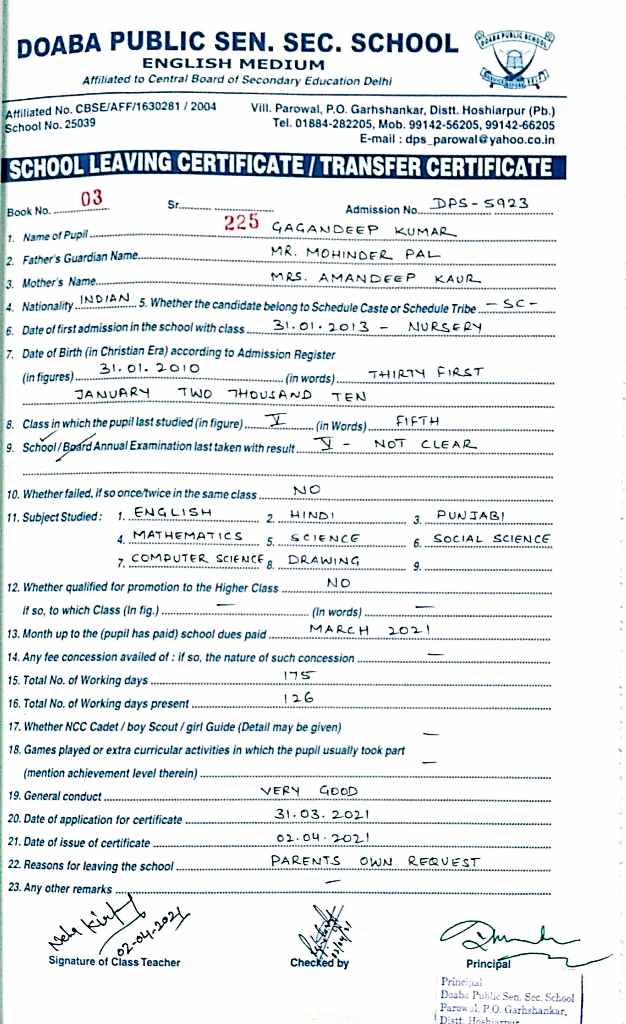 DOABA PUBLIC SEN. SEC. SCHOOL
ENGLISH MEDIUM
Affiliated to Central Board of Secondary Education Delhi
DOABA PUBLIC SCHOOL
Affiliated No. CBSE/AFF/1630281 / 2004
School No. 25039
Vill. Parowal, P.O. Garhshankar, Distt. Hoshiarpur (Pb.)
Tel. 01884-282205, Mob. 99142-56205, 99142-66205
E-mail : dps_parowal@yahoo.co.in
SCHOOL LEAVING CERTIFICATE / TRANSFER CERTIFICATE
Book No. 03 Sr. 225 Admission No. DPS-5923
1. Name of Pupil GAGANDEEP KUMAR
2. Father's Guardian Name MR. MOHINDER PAL
3. Mother's Name MRS. AMANDEEP KAUR
4. Nationality INDIAN 5. Whether the candidate belong to Schedule Caste or Schedule Tribe - SC -
6. Date of first admission in the school with class 31.01.2013 - NURSERY
7. Date of Birth (in Christian Era) according to Admission Register
(in figures) 31.01.2010 (in words) THIRTY FIRST
JANUARY TWO THOUSAND TEN
8. Class in which the pupil last studied (in figure) V (in Words) FIFTH
9. School / Board Annual Examination last taken with result V - NOT CLEAR
10. Whether failed, if so once/twice in the same class NO
11. Subject Studied : 1. ENGLISH 2. HINDI 3. PUNJABI
4. MATHEMATICS 5. SCIENCE 6. SOCIAL SCIENCE
7. COMPUTER SCIENCE 8. DRAWING 9.
12. Whether qualified for promotion to the Higher Class NO
if so, to which Class (In fig.) — (In words) —
13. Month up to the (pupil has paid) school dues paid MARCH 2021
14. Any fee concession availed of : if so, the nature of such concession —
15. Total No. of Working days 175
16. Total No. of Working days present 126
17. Whether NCC Cadet / boy Scout / girl Guide (Detail may be given) —
18. Games played or extra curricular activities in which the pupil usually took part —
(mention achievement level therein)
19. General conduct VERY GOOD
20. Date of application for certificate 31.03.2021
21. Date of issue of certificate 02.04.2021
22. Reasons for leaving the school PARENTS OWN REQUEST
23. Any other remarks —
Neha 02-04-2021
Signature of Class Teacher Checked by Principal
Principal
Doaba Public Sen. Sec. School
Parowal, P.O. Garhshankar,
Distt. Hoshiarpur